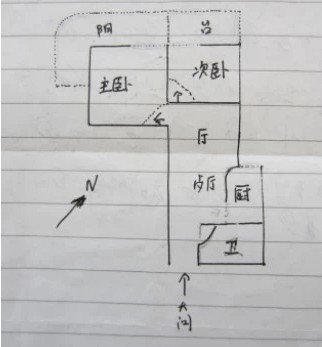 阳 台
主卧 次卧
厅
歺厅
厨
N
卫
大
门